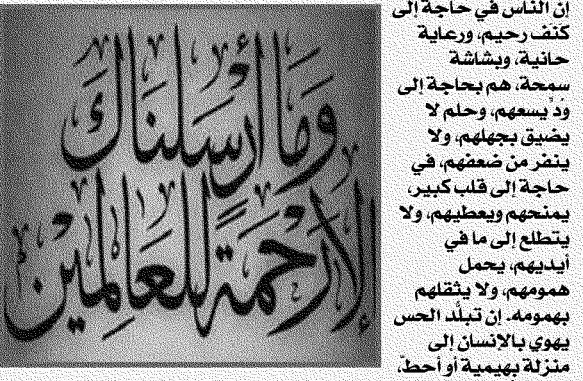 إن الناس في حاجة إلى
كَنَف رحيم، ورعاية
حانية، وبشاشة
سمحة، هم بحاجة إلى
وُدّ يسعهم، وحلم لا
يضيق بجهلهم، ولا
ينفر من ضعفهم، في
حاجة إلى قلب كبير،
يمنحهم ويعطيهم، ولا
يتطلع إلى ما في
أيديهم، يحمل
همومهم، ولا يثقلهم
بهمومه. إن تبلُّد الحس
يهوي بالإنسان إلى
منزلة بهيمية أو أحطّ،
وَمَا أَرْسَلْنَاكَ
إِلَّا رَحْمَةً لِلْعَالَمِينَ